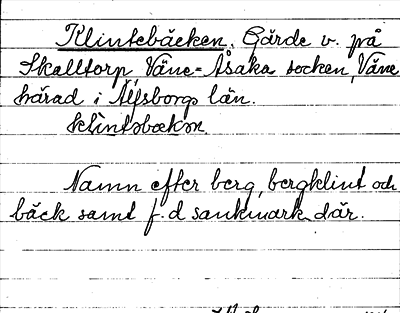 Klintebäcken. Gärde v. på
Skalltorp, Väne-Åsaka socken, Väne
härad i Älfsborgs län.
klìntəbækən
Namn efter berg, bergklint och
bäck samt f.d sankmark där.